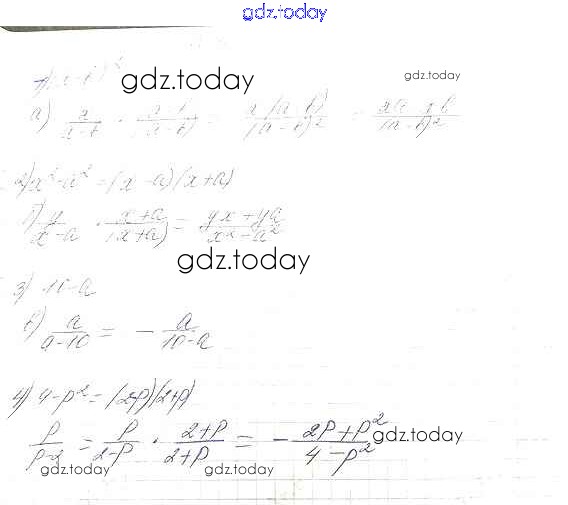 gdz.today
gdz.today
gdz.today
а) x/(a-b) · (a-b)/(a-b) = x(a-b)/(a-b)² = (xa-xb)/(a-b)²
2) x²-a² = (x-a)(x+a)
б) y/(x-a) · (x+a)/(x+a) = (yx+ya)/(x²-a²)
gdz.today
3) 10-a
в) a/(a-10) = - a/(10-a)
4) 4-p² = (2-p)(2+p)
p/(p-2) = p/(2-p) · (2+p)/(2+p) = - (2p+p²)/(4-p²)
gdz.today
gdz.today
gdz.today